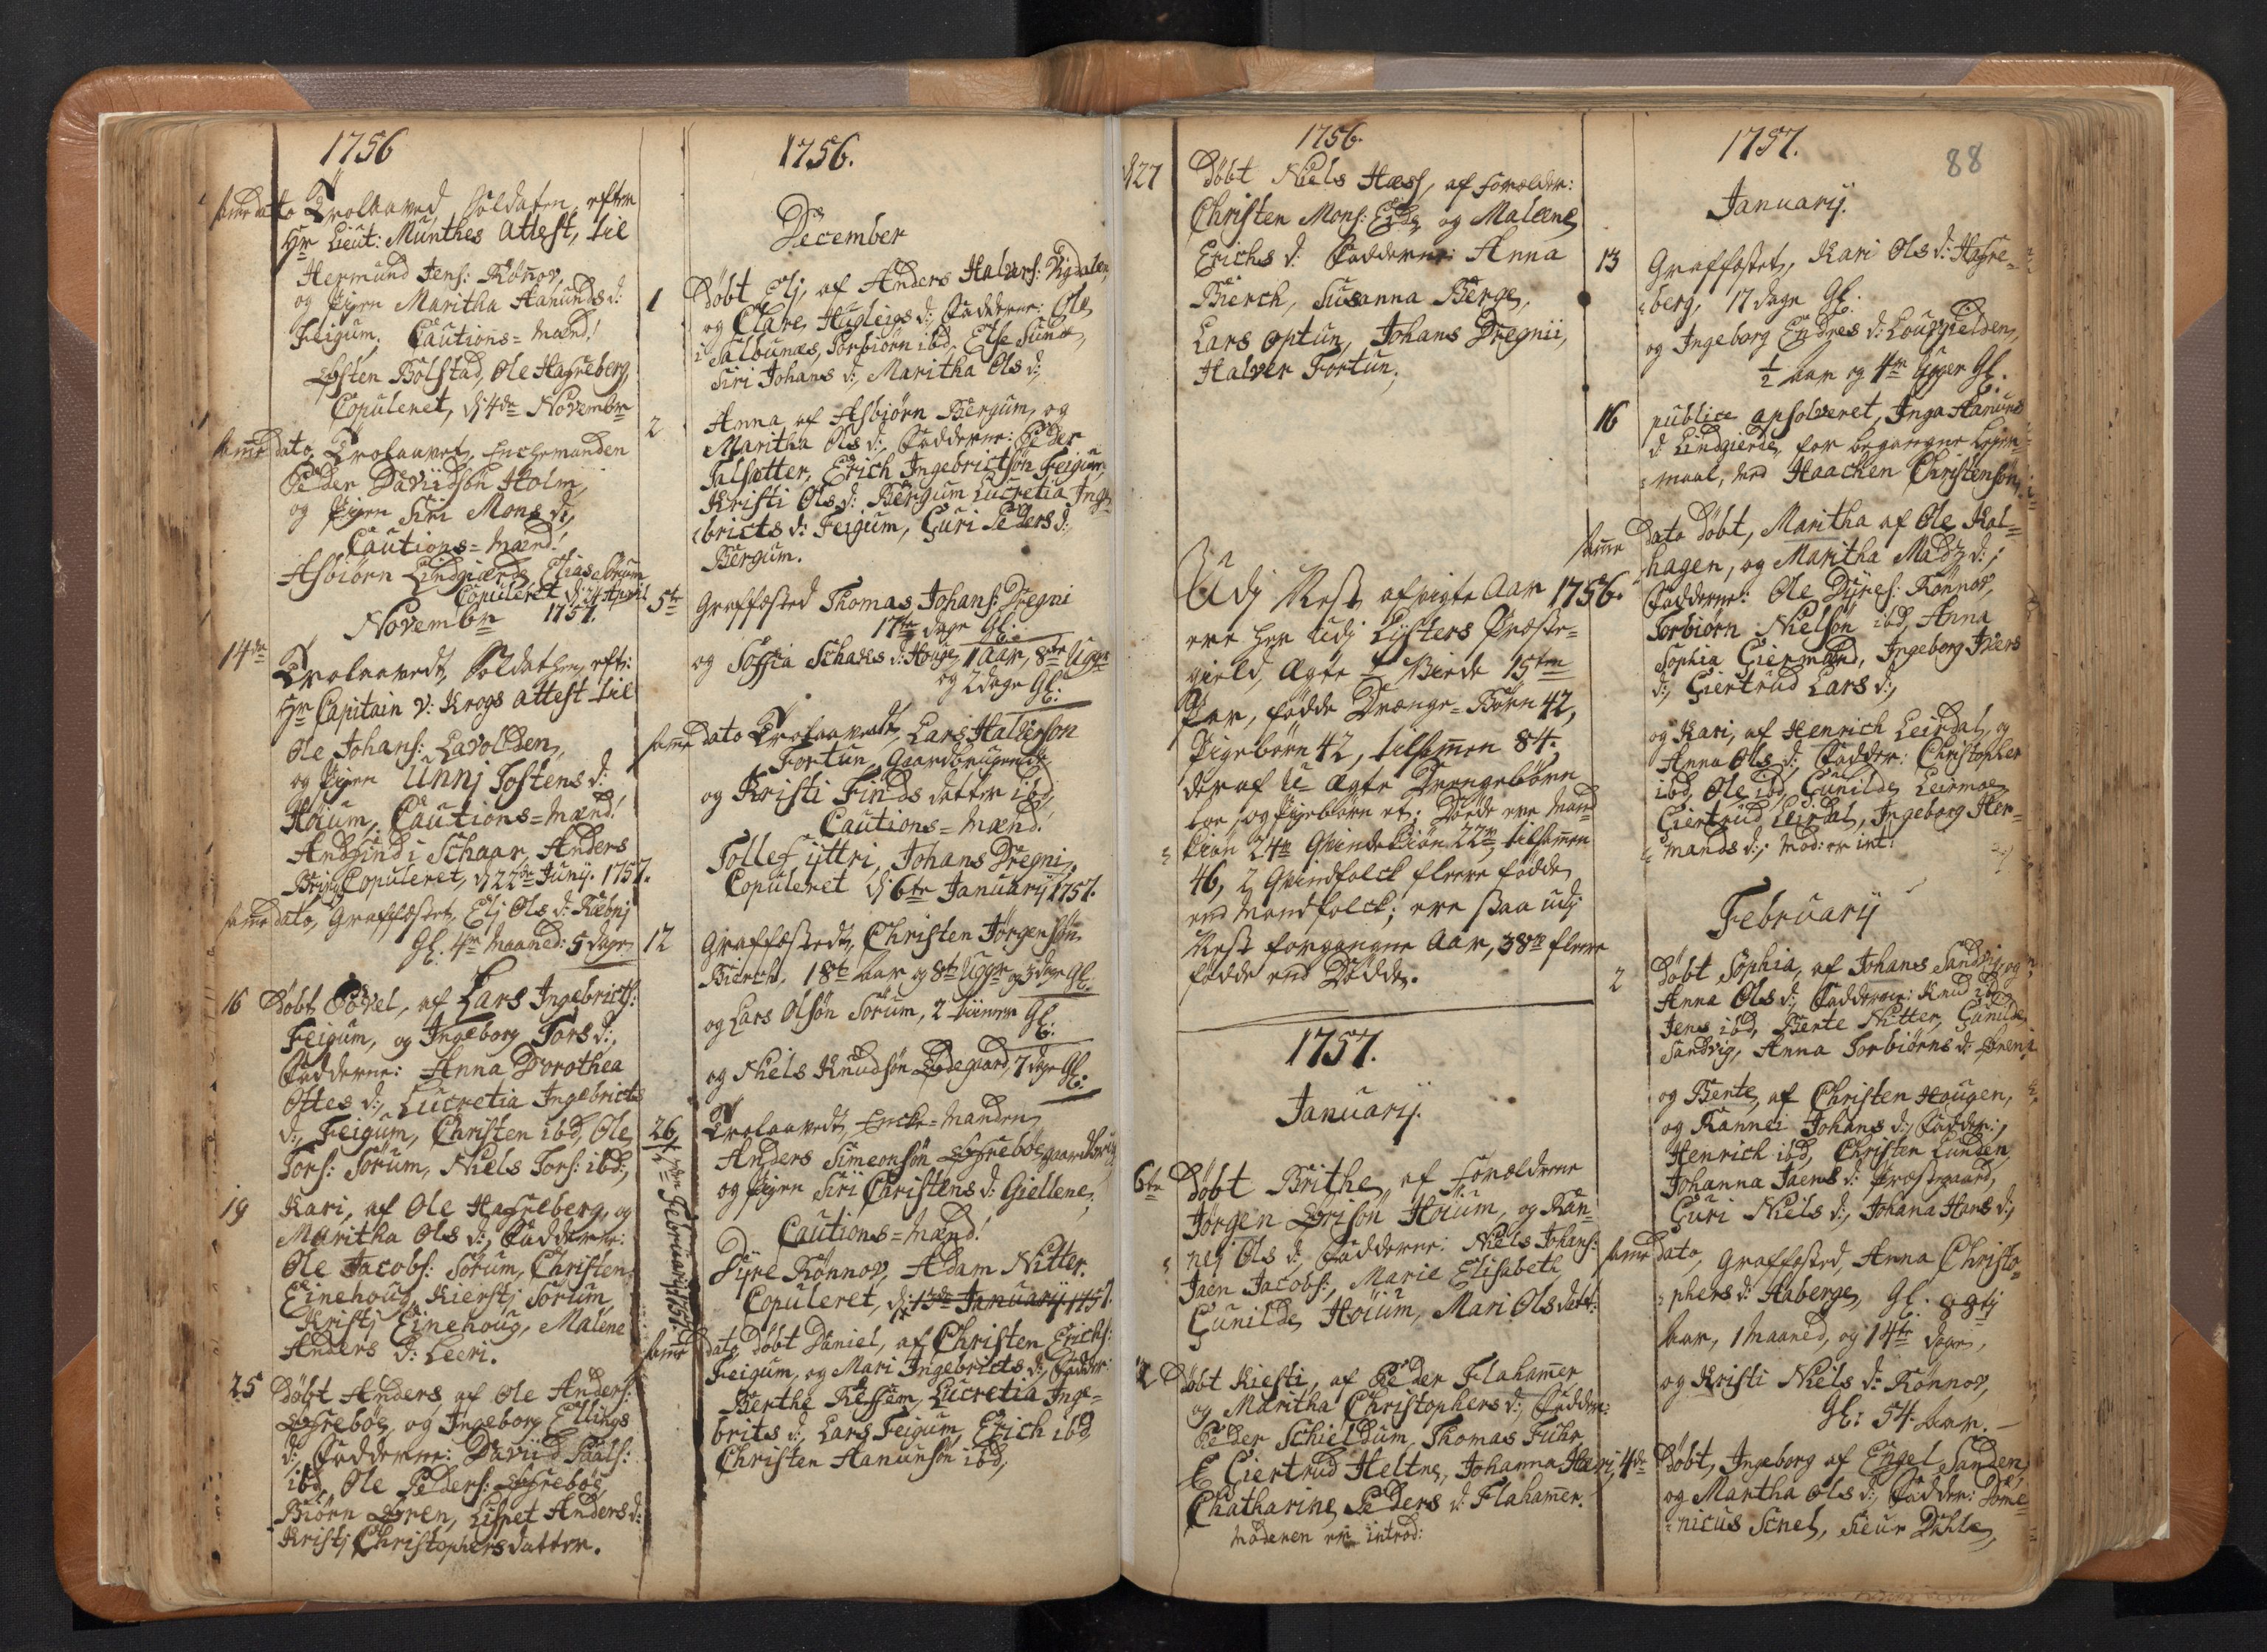 1756
same dato Trolaaved, Soldaten, efter
Hr Lieut: Munthes attest, til
Hermund Jens: Rönov,
og Pigen Maritha Aanunds d:
Feigum. Cautions=Mænd!
Østen Bolstad, Ole Hafseberg,
Copuleret, d: 4de Novembr
same dato Trolaavet, Enchemanden
Peder Daviidsön Holm,
og Pigen Siri Mons d:,
Cautions=Mænd!
Asbiörn Lindgierde, Elias
Copuleret d: 24 April
Novembr 1757.
14de
Trolaavedt, Soldathen, eft:
Hr Capitain v: Krogs attest til
Ole Johans: Lavollden,
og Pigen Unnj Tostens d:
Höium, Cautions=Mænd!
Andfind i Schaar, Anders
Copuleret, d: 22de Junij. 1757.
same dato, Graffæstet, Elj Ols d:
Gl: 4re Maaned: 5 dage
16 Döbt Povel, af Lars Ingebricts:
Feigum, og Ingeborg Tors d:,
Fadderne: Anna Dorothea
Ottes d:, Lucretia Ingebricts
d:, Feigum, Christen ibd, Ole
Tors: Sörum, Niels Tors: ibd;
19 Kari, af Ole Hafseberg, og
Maritha Ols d:, Fadderne:
Ole Jacobs: Sörum, Christen
Einehoug, Kierstj Sörum
Kristj Einehoug, Malene
Anders d: Leeri.
25 Döbt Anders, af Ole Anders:
Øfreböe, og Ingeborg Ellings
d:, Fadderne: David Paals:
ibd, Ole Peders: Øfreböe,
Biörn Øren, Lispet Anders d:
Kristj Christophersdatter.
1756.
December
1 Döbt Elj, af Anders Halvers: Vigdalen,
og Clare Hugleigs d:, Fadderne: Ole
i Salbunæs, Torbiörn ibd, Else
Siri Johans d:, Maritha Ols d:,
2 Anna af Asbiörn Bergum, og
Maritha Ols d:, Fadderne: Peder
Talsætter, Erich Ingebrictsön Feigum,
Kristi Ols d: Bergum Lucretia Inge
bricts d: Feigum, Guri Peders d:
Bergum.
5te Graffæsted Thomas Johans: Dregni
17ten dage Gl:
og Soffia d: Houge, 1 Aar, 8te Uger
og 2 dage Gl:
same dato Trolaavedt, Lars Halversön
Fortun, Gaardbrugende
og Kristi Finds datter ibd,
Cautions=Mænd!
Tollef yttri, Johans Dregni,
Copuleret d: 6te Januarij 1757.
12 Graffæstedt, Christen Jörgensön
Bierch, 18te Aar og 8te Uger og 3 dage Gl:
og Lars Olsön Sörum, 2 timer Gl:
og Niels Knudsön Ødegaard, 7 dage Gl:
26 Trolaavedt, Encke=Manden
Anders Simeonsön Øfreböe,
og Pigen Siri Christens d: Giellene,
Cautions=Mænd!
Dyre Rönnov, Adam Nitter.
Copuleret, d: 13de Januarij 1757.
Februarij 1757.
same dato döbt Daniel, af Christen Erichs:
Feigum, og Mari Ingebricts d:, Fadder:
Berthe Kessem, Lucretia Inge=
brits d:, Lars Feigum, Erich ibd,
Christen Hanunsön ibd,
1756.
27 Döbt Niels Hæss, af forældre:
Christen Mons: Eide og Malene
Erichs d: Fadderne: Anna
Bierch, Susanna Berge,
Lars optun, Johans Dregnii,
Halver Fortun.
Udj Nest afvigte Aar 1756.
ere her udj Lysters Præste=
gield, Ægte Viede 15ten
Par, födde Drænge=Börn 42,
Pigebörn 42, tilsammen 84.
deraf U-Ægte Drengebörn
toe, og Pigebörn et; Döde ere Mand
kiön 24re Qvindekiön 22re, tilsammen
46, 2 Qvindfolck fleere födde
end Mandfolck; ere saa udj
Nest forgangne Aar, 38te fleere
födde end Dödde.
1757.
Januarij.
6te Döbt Brithe, af Forældrene
Jörgen Høium, og Ran=
nej Ols d:, Fadderne: Niels Johans:
Jaen Jacobs:, Marie Elisabeth
Gunilde Höium, Mari Ols dott:
Döbt Kiesti, af Peder Flahamer
og Maritha Christophers d:, Fadder:
Peder Schieldum, Thomas Fuhr,
Giertrud Heltne, Johanna
Chatharine Peders d: Flahamer.
Moderen er introd:
1757.
88
Januarij.
13 Graffæstet, Kari Ols d: Hafse=
berg, 17 dage Gl:
og Ingeborg Endres d:
1/2 Aar og 4re Uger Gl.
16 publice apsolveret, Inga Hanuns
d: Lindgierde, for begangne Leyer
maal, med Haachen Christensön,
same dato döbt, Maritha af Ole Kal=
hagen, og Maritha Madz d:;
Fadderne: Ole Dyres: Rönnov,
Torbiörn Nielsön ibd, Anna
Sophia Giermand, Ingeborg Ivers
d:, Giertrud Lars d:,
og Kari, af Henrich Leirdal, og
Anna Ols d:, Fadder: Christopher
ibd, Ole ibd, Gunilde Leirmoe
Giertrud Leirdal, Ingeborg Her=
mands d:; Mod: er int:
Februarij
2 Döbt Sophia, af Johans Sandvig, og
Anna Ols d:, Fadderne: Knud ibd,
Jens ibd, Bente Nitter, Gunilde
Sandvig, Anna Torbiörns d:
og Bente, af Christen Hougen,
og Rannei Johans d:, Fadder:,
Henrich ibd, Christen Lunden,
Johanna Jaens d: Præstegaard,
Guri Niels d:, Johana Hans d:,
same dato, Graffæsted, Anna Christo=
phers d: Aaberge, Gl: 88tj
Aar, 1 Maaned, og 14te dage,
og Kristi Niels d: Rönnov,
Gl: 54. Aar.
4de Döbt, Ingeborg af Engel Sanden
og Martha Ols d:, Fadder: Dome=
nicus Snel, Sieur Dahle,